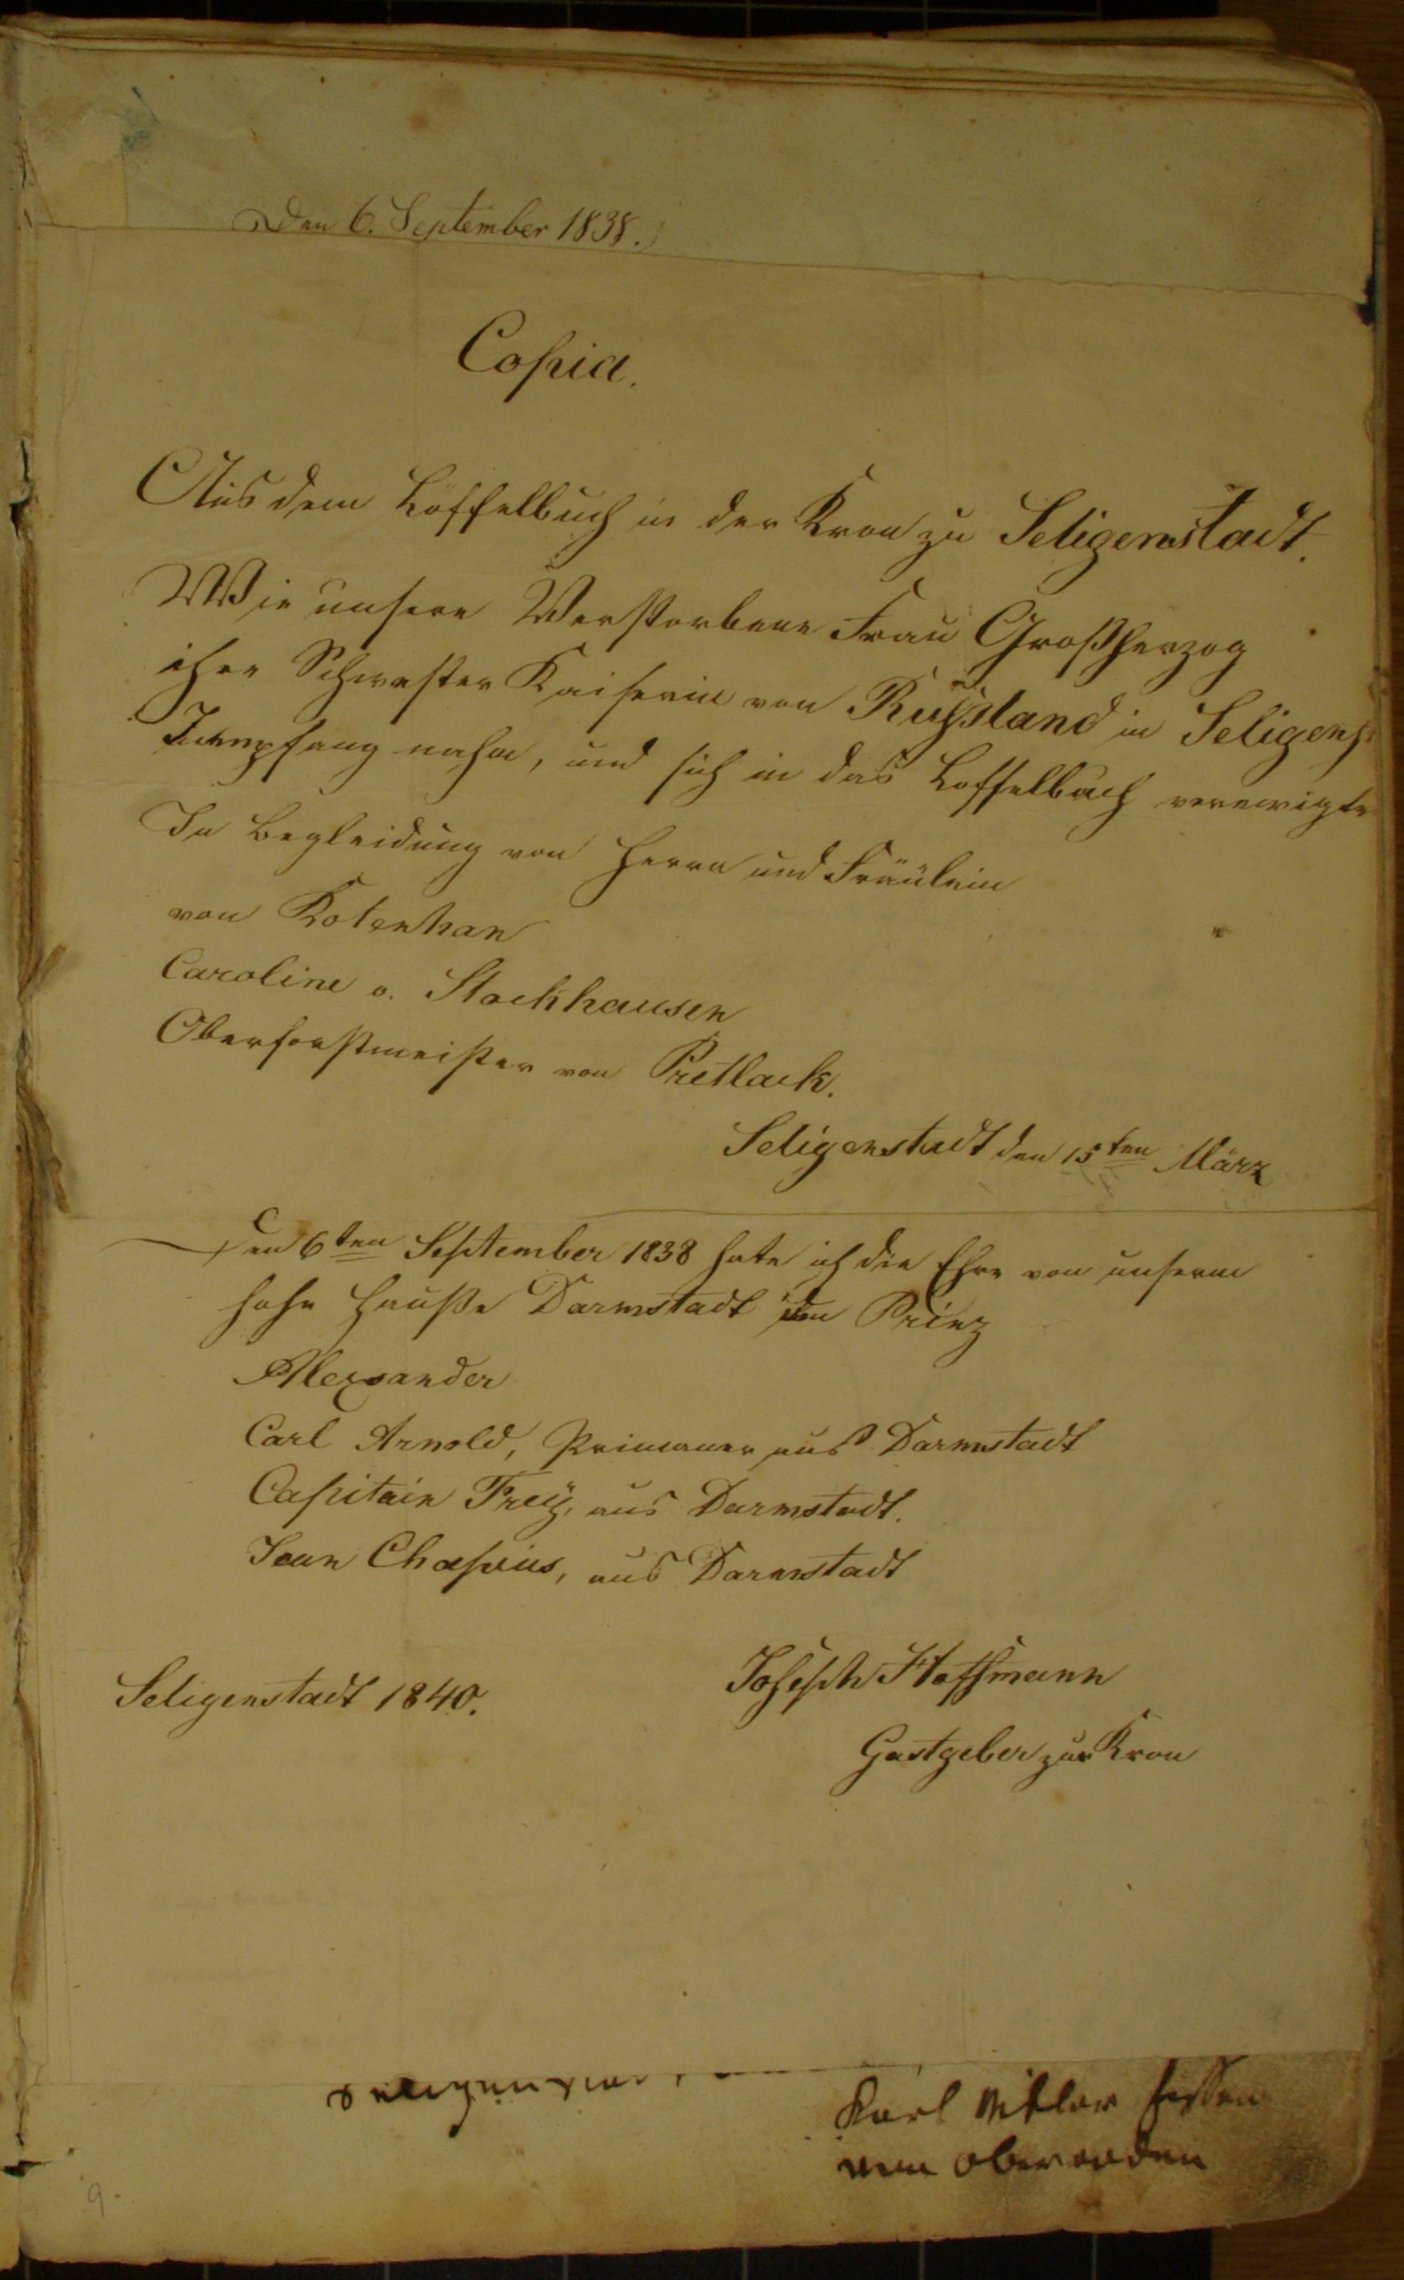 Den 6. September 1838.
Copia.
Aus dem Löffelbuch in der Kron zu Seligenstadt.
Wie unsere Verstorbene Frau Großherzog
ihre Schwester Kaiserin von Rußland in Seligenst
Inempfang nahm, und sich in das Loffelbuch verewigte
In begleidung von Herrn und Fräulein
von Rotenhan
Caroline v. Stockhausen
Oberforstmeister von Pretlack.
Seligenstadt den 15ten März
Den 6ten September 1838 hate ich die Ehre von unserm
hohe Hauße Darmstadt den Prinz
Alexander
Carl Arnold, Primaner aus Darmstadt
Capitain Frey, aus Darmstadt.
Jean Chapius, aus Darmstadt
Seligenstadt 1840.
Joseph Hoffmann
Gastgeber zur Kron
Karl
von Oberroden
9.